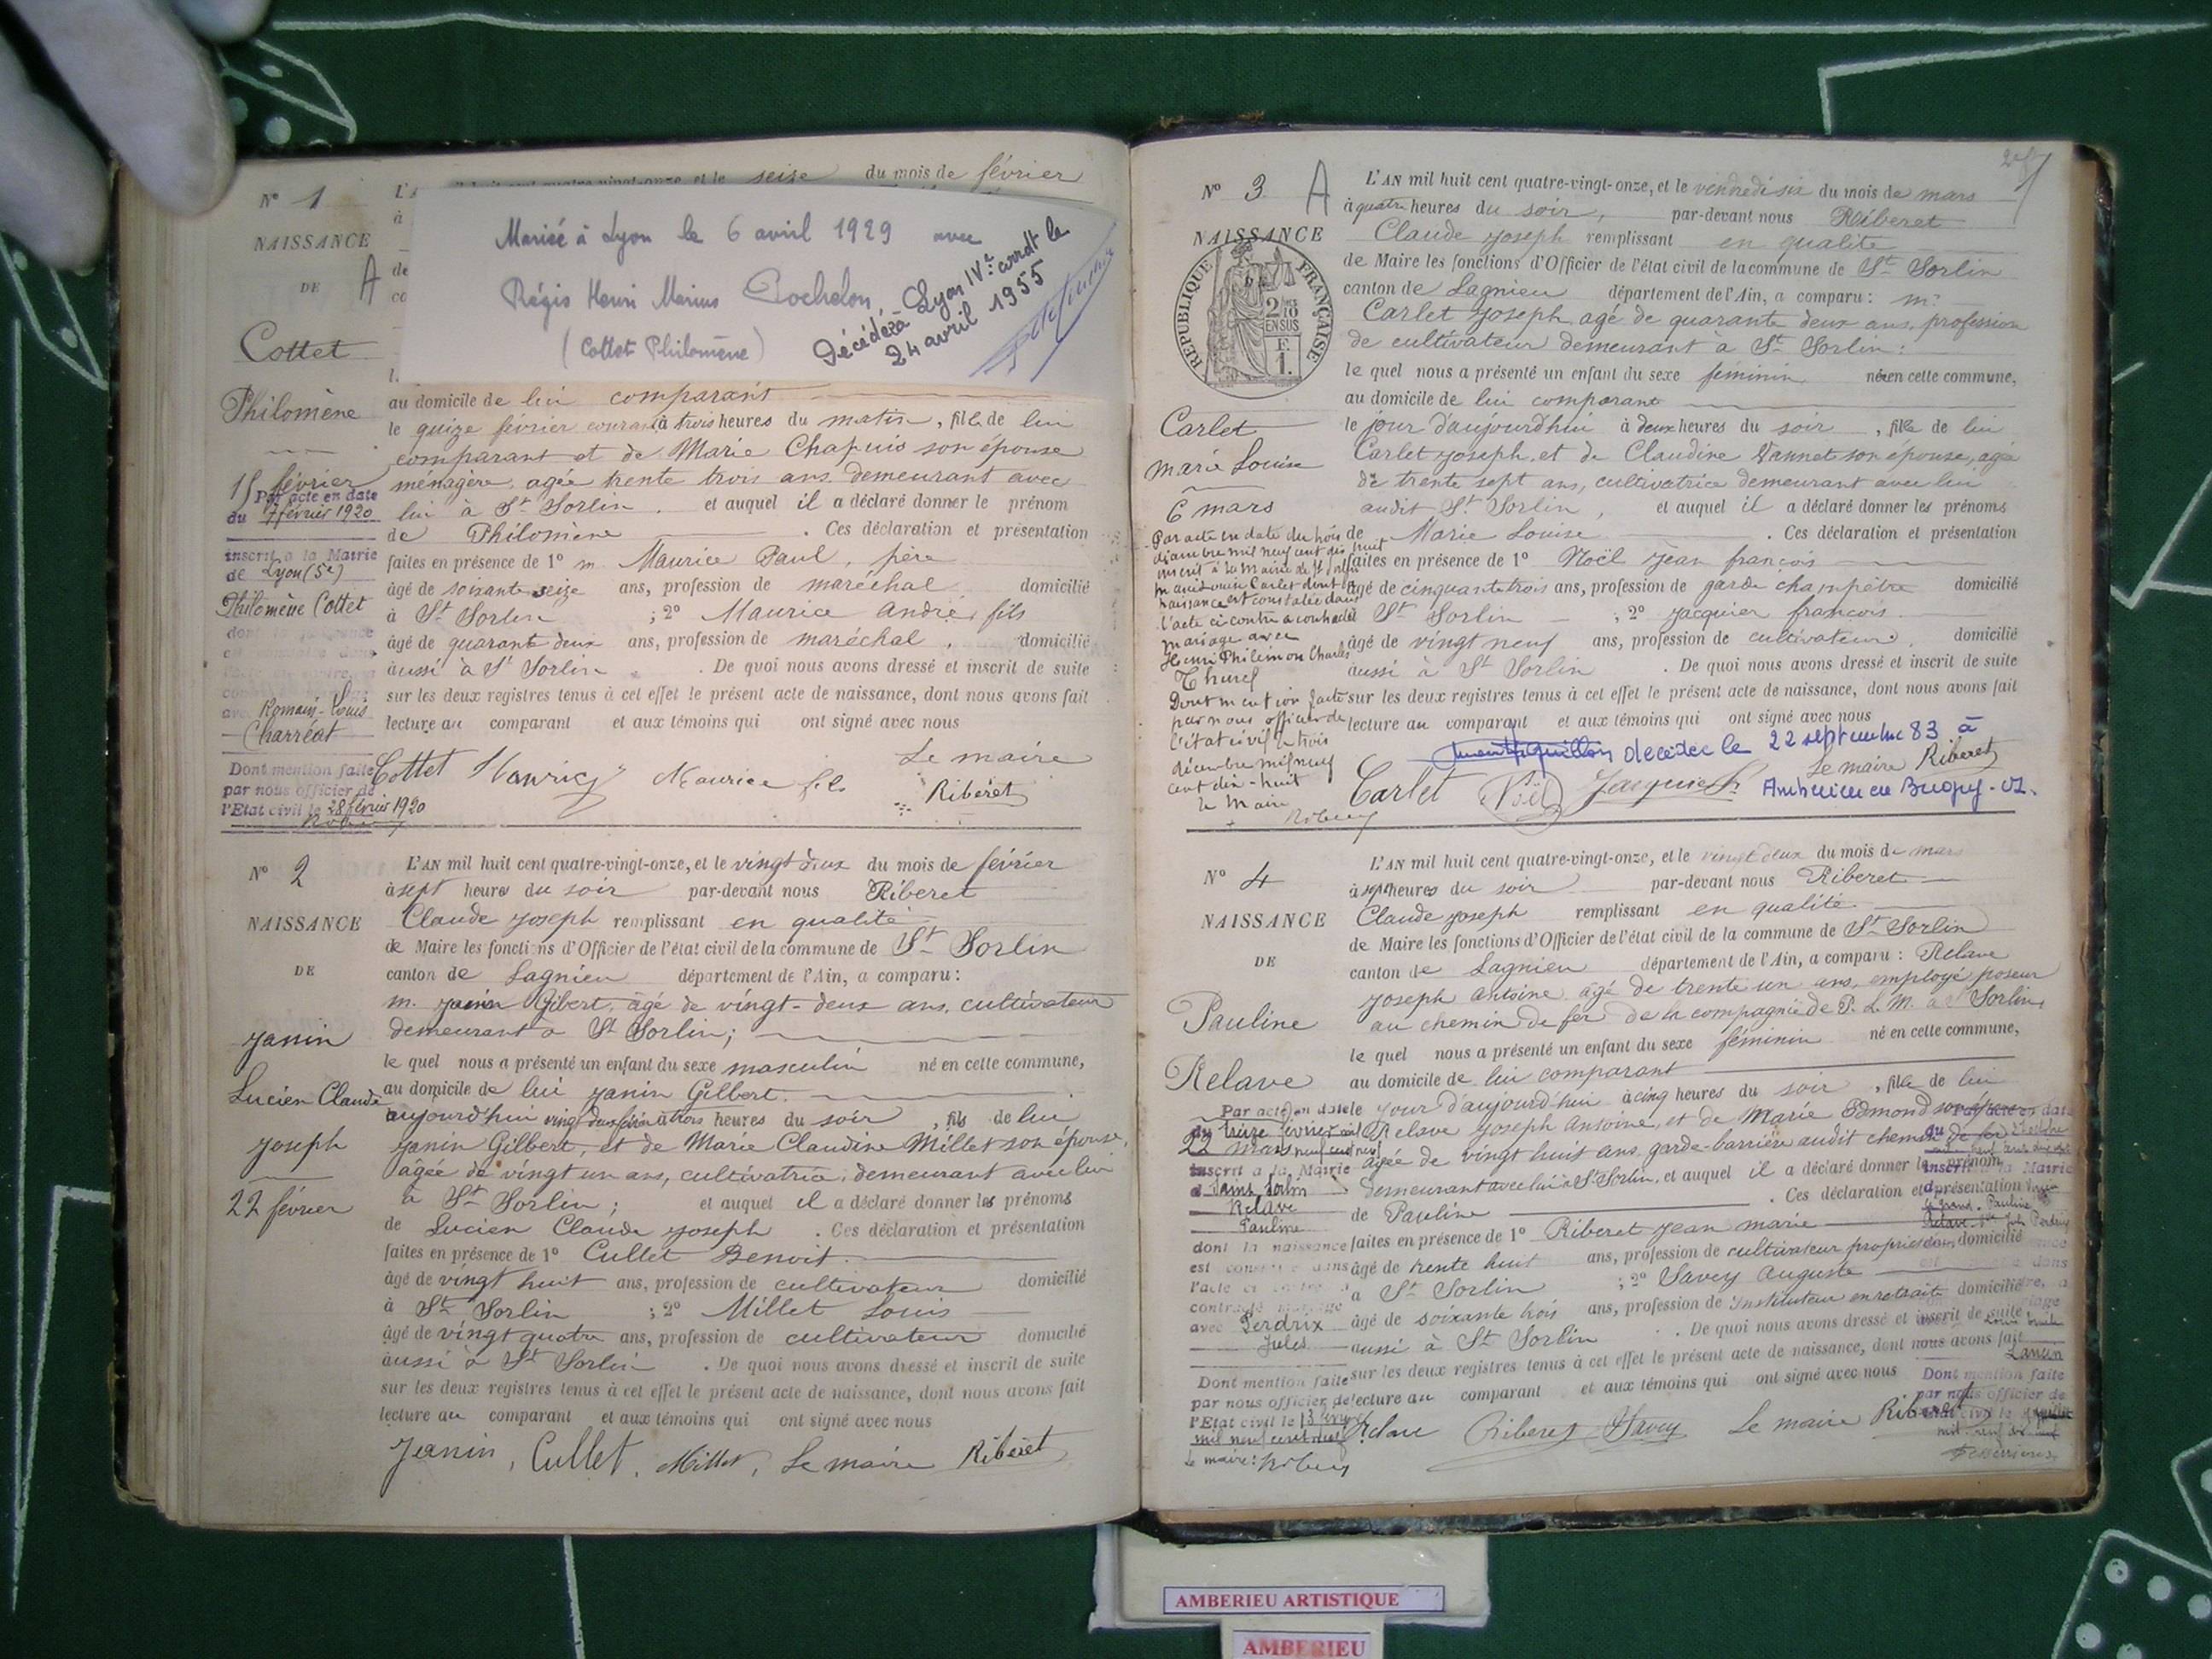 N° 1
NAISSANCE
DE
A
Cottet
Philomène
15 février
Par acte en date
du 7 février 1920
inscrit à la Mairie
de Lyon (5e)
Philomène Cottet
Romain-Louis
Charréat
Dont mention faite
par nous officier de
l'Etat civil le 28 février 1920
et le seize du mois de février
Mariée à Lyon le 6 avril 1929 avec
Régis Henri Marius Cochelon
(Cottet Philomène)
Décédée à Lyon IVe arrdt le
24 avril 1955
au domicile de lui comparant
le quize février courant à trois heures du matin, fille de lui
comparant et de Marie Chapuis son épouse
ménagère, agée trente trois ans demeurant avec
lui à St Sorlin. et auquel il a déclaré donner le prénom
de Philomène. Ces déclaration et présentation
faites en présence de 1° m. Maurice Paul, père
âgé de soixante seize ans, profession de maréchal domicilié
à St Sorlin ; 2° Maurice André, fils
âgé de quarante deux ans, profession de maréchal, domicilié
aussi à St Sorlin. De quoi nous avons dressé et inscrit de suite
sur les deux registres tenus à cet effet le présent acte de naissance, dont nous avons fait
lecture au comparant et aux témoins qui ont signé avec nous
Le maire
Cottet Maurice Maurice fils Riberet
N° 2
NAISSANCE
DE
Janin
Lucien Claude
Joseph
22 février
L'AN mil huit cent quatre-vingt-onze, et le vingt deux du mois de février
à sept heures du soir par-devant nous Riberet
Claude Joseph remplissant en qualité
de Maire les fonctions d'Officier de l'état civil de la commune de St Sorlin
canton de Lagnieu département de l'Ain, a comparu :
m. Janin Gibert, âgé de vingt-deux ans, cultivateur
demeurant à St Sorlin ;
le quel nous a présenté un enfant du sexe masculin né en cette commune,
au domicile de lui Janin Gilbert.
aujourd'hui vingt deux février à trois heures du soir, fils de lui
Janin Gilbert, et de Marie Claudine Millet son épouse,
âgée de vingt un ans, cultivatrice, demeurant avec lui
à St Sorlin ; et auquel il a déclaré donner les prénoms
de Lucien Claude Joseph. Ces déclaration et présentation
faites en présence de 1° Cullet Benoit.
âgé de vingt huit ans, profession de cultivateur domicilié
à St Sorlin ; 2° Millet Louis
âgé de vingt quatre ans, profession de cultivateur domicilié
aussi à St Sorlin. De quoi nous avons dressé et inscrit de suite
sur les deux registres tenus à cet effet le présent acte de naissance, dont nous avons fait
lecture au comparant et aux témoins qui ont signé avec nous
Jeanin, Cullet, Millet, Le maire Riberet
N° 3
A
NAISSANCE
REPUBLIQUE FRANÇAISE
Carlet
Marie Louise
6 mars
Par acte en date du trois
décembre mil neuf cent dix huit
inscrit à la mairie de St Sorlin
Marie Louise Carlet dont la
naissance est constatée dans
l'acte ci-contre a contracté
mariage avec
Henri Philémon Charles
Thurel
Dont mention faite
par nous officier de
l'état civil le trois
décembre mil neuf
cent dix-huit
le Maire
L'AN mil huit cent quatre-vingt-onze, et le vendredi six du mois de mars
à quatre heures du soir, par-devant nous Riberet
Claude Joseph remplissant en qualité
de Maire les fonctions d'Officier de l'état civil de la commune de St Sorlin
canton de Lagnieu département de l'Ain, a comparu : mr
Carlet Joseph, agé de quarante deux ans, profession
de cultivateur demeurant à St Sorlin :
le quel nous a présenté un enfant du sexe féminin né en cette commune,
au domicile de lui comparant
le jour d'aujourd'hui à deux heures du soir, fille de lui
Carlet Joseph, et de Claudine Vannet son épouse, agée
de trente sept ans, cultivatrice demeurant avec lui
audit St Sorlin, et auquel il a déclaré donner les prénoms
de Marie Louise. Ces déclaration et présentation
faites en présence de 1° Noël Jean françois
âgé de cinquante trois ans, profession de garde champêtre domicilié
à St Sorlin ; 2° Jacquier françois
âgé de vingt neuf ans, profession de cultivateur, domicilié
aussi à St Sorlin. De quoi nous avons dressé et inscrit de suite
sur les deux registres tenus à cet effet le présent acte de naissance, dont nous avons fait
lecture au comparant et aux témoins qui ont signé avec nous
décédée le 22 septembre 83 à
Ambérieu en Bugey - 01.
Carlet Noël Jacquier Le maire Riberet
N° 4
NAISSANCE
DE
Pauline
Relave
22 mars
Par acte en date
du treize février mil
neuf cent neuf
inscrit à la Mairie
de Saint Sorlin
Relave
Pauline
dont la naissance
est constatée dans
l'acte ci-contre a
contracté mariage
avec Perdrix
Jules
Dont mention faite
par nous officier de
l'Etat civil le 13 février
mil neuf cent neuf
Le maire :
L'AN mil huit cent quatre-vingt-onze, et le vingt deux du mois de mars
à sept heures du soir par-devant nous Riberet
Claude Joseph remplissant en qualité
de Maire les fonctions d'Officier de l'état civil de la commune de St Sorlin
canton de Lagnieu département de l'Ain, a comparu : Relave
Joseph Antoine agé de trente un ans, employé poseur
au chemin de fer de la compagnie de P. L. M. à St Sorlin,
le quel nous a présenté un enfant du sexe féminin né en cette commune,
au domicile de lui comparant
le jour d'aujourd'hui à cinq heures du soir, fille de lui
Relave Joseph Antoine, et de Marie Edmond son épouse
agée de vingt huit ans, garde-barrière audit chemin de fer
demeurant avec lui à St Sorlin, et auquel il a déclaré donner le prénom
de Pauline. Ces déclaration et présentation
faites en présence de 1° Riberet Jean marie
âgé de trente huit ans, profession de cultivateur propriétaire, domicilié
à St Sorlin ; 2° Savey Auguste
âgé de soixante trois ans, profession de Instituteur en retraite domicilié
aussi à St Sorlin. De quoi nous avons dressé et inscrit de suite
sur les deux registres tenus à cet effet le présent acte de naissance, dont nous avons fait
lecture au comparant et aux témoins qui ont signé avec nous
Relave Riberet Savey Le maire Riberet
Par acte en date
inscrit à la Mairie
Pauline
Lancin
Dont mention faite
par nous officier de
l'Etat civil le
AMBERIEU ARTISTIQUE
AMBERIEU